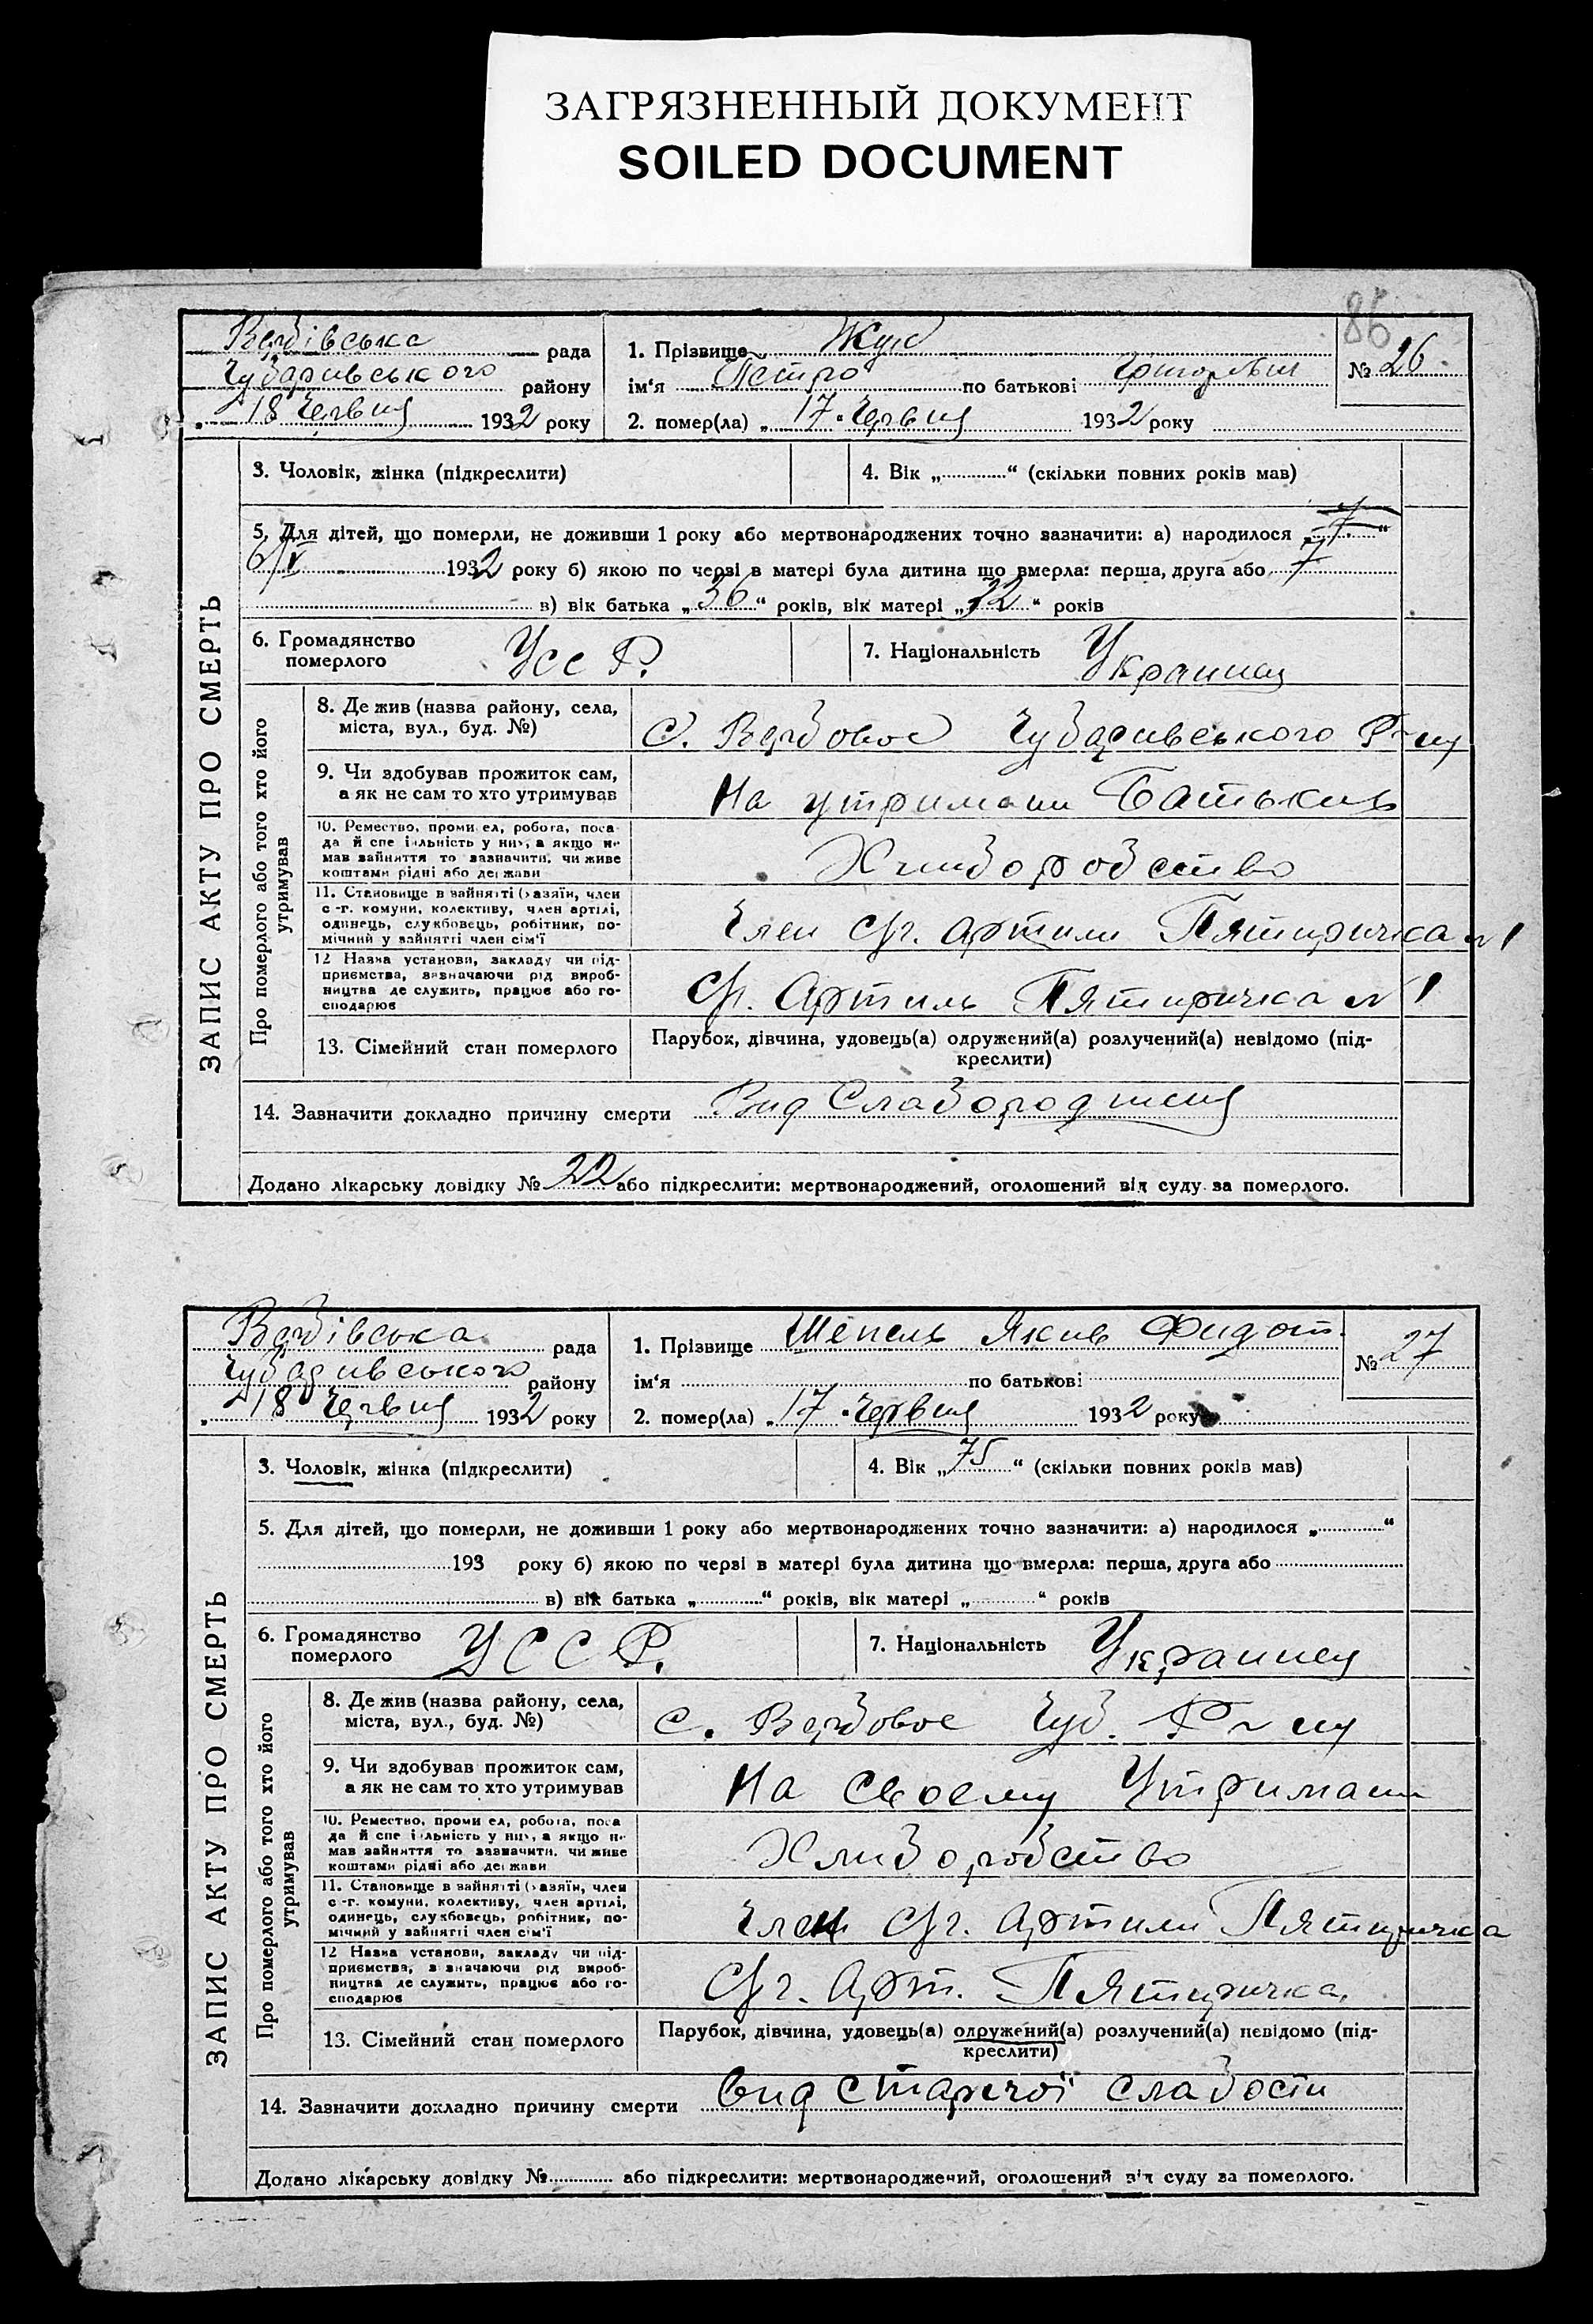 ЗАГРЯЗНЕННЫЙ ДОКУМЕНТ
SOILED DOCUMENT
86
Вербівська рада
Чубарівського району
18 Червня 1932 року
1. Прізвище Жуб
ім'я Петро по батькові Григорович
2. помер(ла) „17" Червня 1932 року
№ 26
ЗАПИС АКТУ ПРО СМЕРТЬ
3. Чоловік, жінка (підкреслити)
4. Вік „ " (скільки повних років мав)
5. Для дітей, що померли, не доживши 1 року або мертвонароджених точно зазначити: а) народилося „ "
6/V 1932 року б) якою по черзі в матері була дитина що вмерла: перша, друга або 7
в) вік батька „36" років, вік матері „32" років
6. Громадянство померлого УссР.
7. Національність Украинец
Про померлого або того хто його утримував
8. Де жив (назва району, села,
міста, вул., буд. №)
С. Вербовое Чубаривського Р-ну
9. Чи здобував прожиток сам,
а як не сам то хто утримував
На утримани Батькив
10. Ремество, промисел, робота, поса-
да й спеціяльність у них, а якщо не
мав зайняття то зазначити, чи живе
коштами рідні або держави
Хлиборобство
11. Становище в зайнятті (хазяїн, член
с-г. комуни, колективу, член артілі,
одинець, службовець, робітник, по-
мічний у зайнятті член сім'ї
Член с/г. артили Пятиричка №1
12 Назва установи, закладу чи під-
приємства, зазначаючи рід вироб-
ництва де служить, працює або го-
сподарює
С/г. Артиль Пятиричка №1
13. Сімейний стан померлого
Парубок, дівчина, удовець(а) одружений(а) розлучений(а) невідомо (під-
креслити)
14. Зазначити докладно причину смерти Вид Слабородження
Додано лікарську довідку № 22 або підкреслити: мертвонароджений, оголошений від суду за померлого.
Вербівська рада
Чубаривського району
18 Червня 1932 року
1. Прізвище Шепель Якив Фидот.
ім'я по батькові
2. помер(ла) „17" Червня 1932 року
№ 27
ЗАПИС АКТУ ПРО СМЕРТЬ
3. Чоловік, жінка (підкреслити)
4. Вік „75" (скільки повних років мав)
5. Для дітей, що померли, не доживши 1 року або мертвонароджених точно зазначити: а) народилося „ "
193 року б) якою по черзі в матері була дитина що вмерла: перша, друга або
в) вік батька „ " років, вік матері „ " років
6. Громадянство померлого УССР.
7. Національність Украинец
Про померлого або того хто його утримував
8. Де жив (назва району, села,
міста, вул., буд. №)
С. Вербовое Чуб. Р-ну
9. Чи здобував прожиток сам,
а як не сам то хто утримував
На своему Утримани
10. Ремество, промисел, робота, поса-
да й спеціяльність у них, а якщо не
мав зайняття то зазначити, чи живе
коштами рідні або держави
Хлиборобство
11. Становище в зайнятті (хазяїн, член
с-г. комуни, колективу, член артілі,
одинець, службовець, робітник, по-
мічний у зайнятті член сім'ї
Член с/г. артили Пятиричка
12 Назва установи, закладу чи під-
приємства, зазначаючи рід вироб-
ництва де служить, працює або го-
сподарює
С/г. Арт. Пятиричка.
13. Сімейний стан померлого
Парубок, дівчина, удовець(а) одружений(а) розлучений(а) невідомо (під-
креслити)
14. Зазначити докладно причину смерти Вид старечої слабости
Додано лікарську довідку № або підкреслити: мертвонароджений, оголошений від суду за померлого.